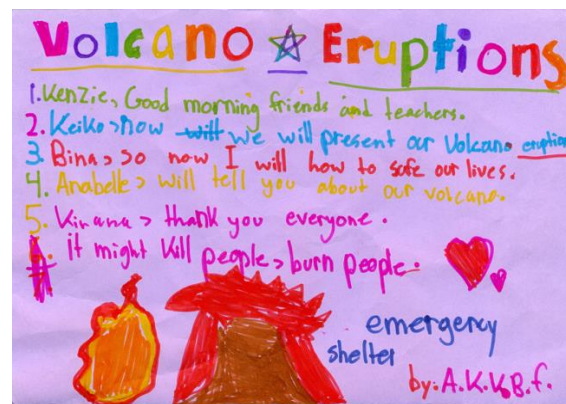 Volcano ☆ Eruptions
1. Kenzie, Good morning friends and teachers.
2. Keiko > now will we will present our Volcano eruption
3. Bina > so now I will how to safe our lives.
4. Anabelle > will tell you about our volcano.
5. Kinana > thank you everyone.
it might kill people > burn people.
emergency
shelter
by: A.K.K.B.f.